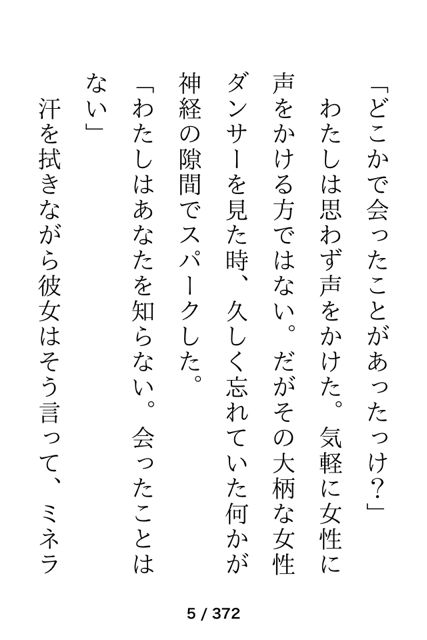 「どこかで会ったことがあったっけ？」
　わたしは思わず声をかけた。気軽に女性に
声をかける方ではない。だがその大柄な女性
ダンサーを見た時、久しく忘れていた何かが
神経の隙間でスパークした。
「わたしはあなたを知らない。会ったことは
ない」
　汗を拭きながら彼女はそう言って、ミネラ
5 / 372